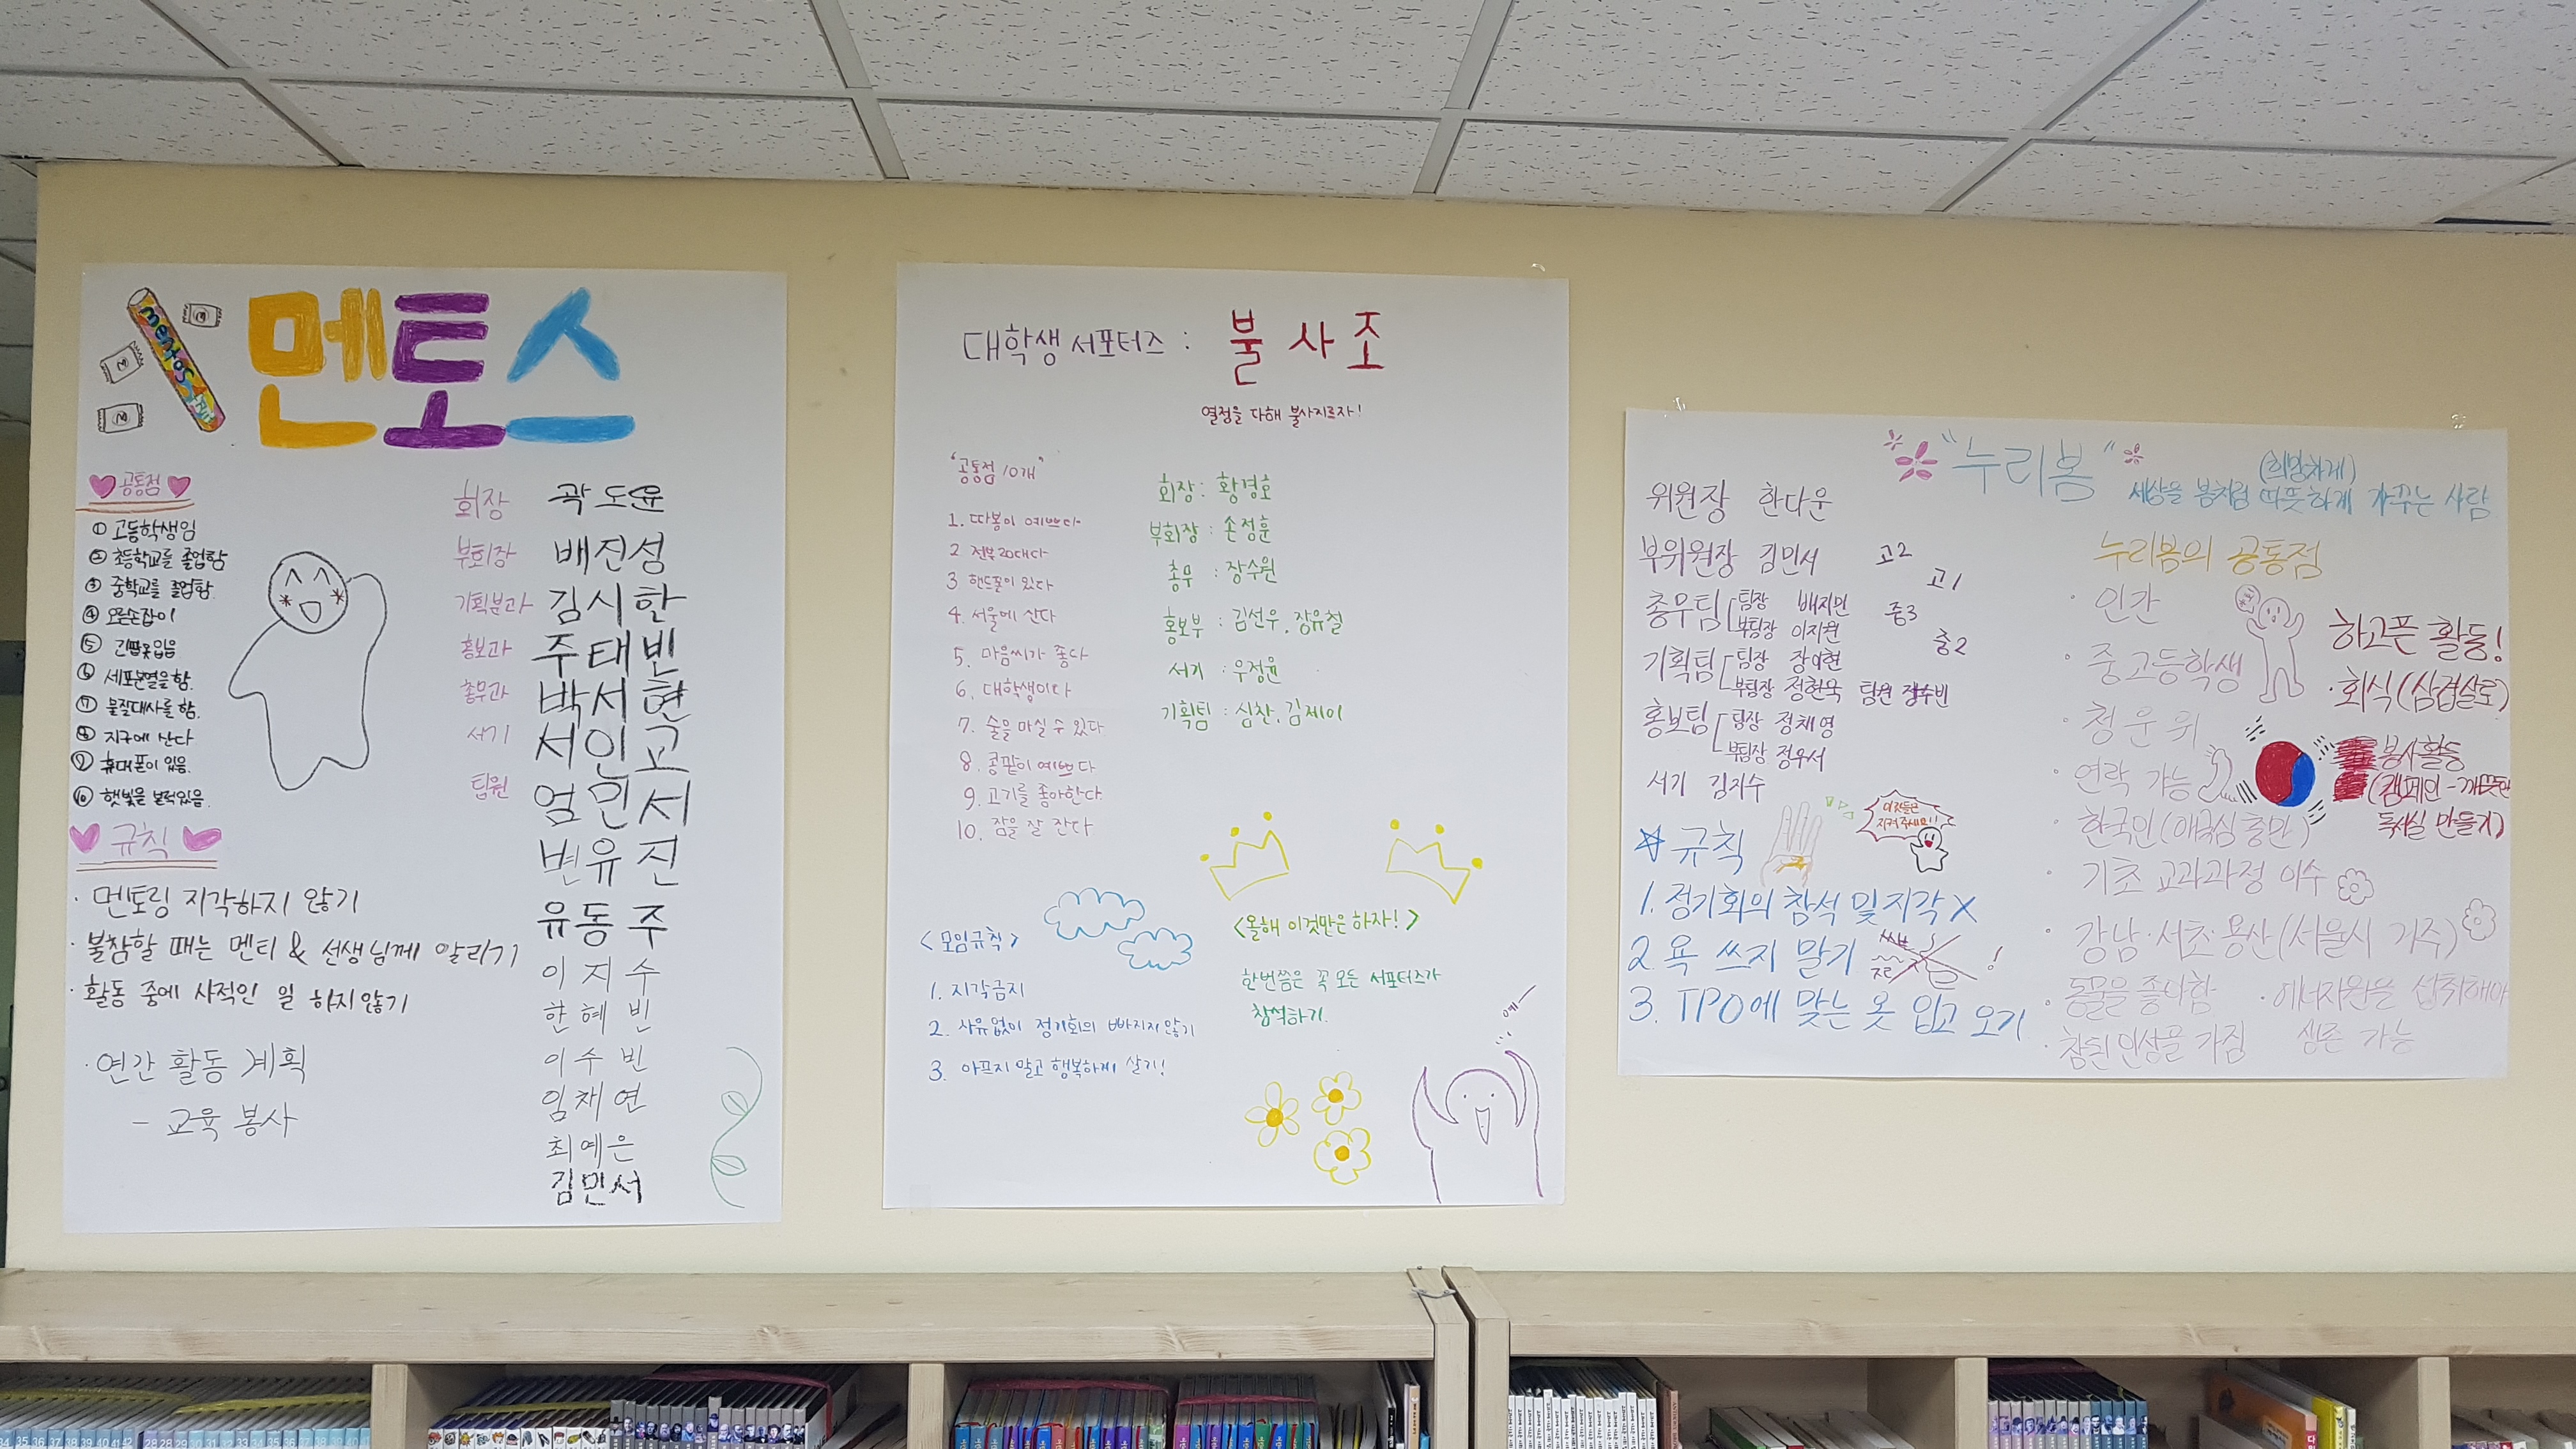 mentos
멘토스
공통점
① 고등학생임
② 초등학교를 졸업함
③ 중학교를 졸업함.
④ 오른손잡이
⑤ 긴팔옷입음
⑥ 세포분열을함.
⑦ 물질대사를 함.
⑧ 지구에 산다
⑨ 휴대폰이 있음.
⑩ 햇빛을 본적있음.
규칙
· 멘토링 지각하지 않기
· 불참할 때는 멘티 & 선생님께 알리기
· 활동 중에 사적인 일 하지않기
· 연간 활동 계획
- 교육 봉사
회장 곽도윤
부회장 배진성
기획분과 김시한
홍보과 주태빈
총무과 박서현
서기 서인고
팀원 엄민서
변유진
유동주
이지수
한혜빈
이수빈
임채연
최예은
김민서
대학생 서포터즈 : 불사조
열정을 다해 불사지르자!
"공통점 10개"
1. 따봉이 예쁘다
2 전부20대다
3 핸드폰이 있다
4. 서울에 산다
5. 마음씨가 좋다
6. 대학생이다
7. 술을 마실 수 있다.
8. 콩팥이 예쁘다
9. 고기를 좋아한다.
10. 잠을 잘 잔다
회장 : 황경호
부회장 : 손정훈
총무 : 장수원
홍보부 : 김선우, 장유철
서기 : 우정윤
기획팀 : 심찬, 김제이
<모임규칙>
1. 지각금지
2. 사유없이 정기회의 빠지지 않기
3. 아프지 말고 행복하게 살기!
<올해 이것만은 하자!>
한번쯤은 꼭 모든 서포터즈가
참석하기.
예—
"누리봄"
(희망차게)
세상을 봄처럼 따뜻하게 가꾸는 사람
위원장 한다운
부위원장 김민서
고2
고1
중3
중2
총무팀 팀장 배지민
부팀장 이지원
기획팀 팀장 장이현
부팀장 정현욱 팀원 정수빈
홍보팀 팀장 정채영
부팀장 정우서
서기 김지수
규칙
이것들은
지켜주세요!!
1. 정기회의 참석 및 지각 X
2. 욕 쓰지 말기
3. TPO에 맞는 옷 입고 오기
누리봄의 공통점
· 인간
· 중고등학생
· 청운위
· 연락 가능
· 한국인(애국심 충만)
· 기초 교과과정 이수
· 강남·서초·용산(서울시 거주)
· 동물을 좋아함
· 참된 인상을 가짐
· 에너지원을 섭취해야
생존 가능
하고픈 활동!
· 회식(삼겹살로)
봉사활동
(캠페인 - 깨끗한
독서실 만들기)